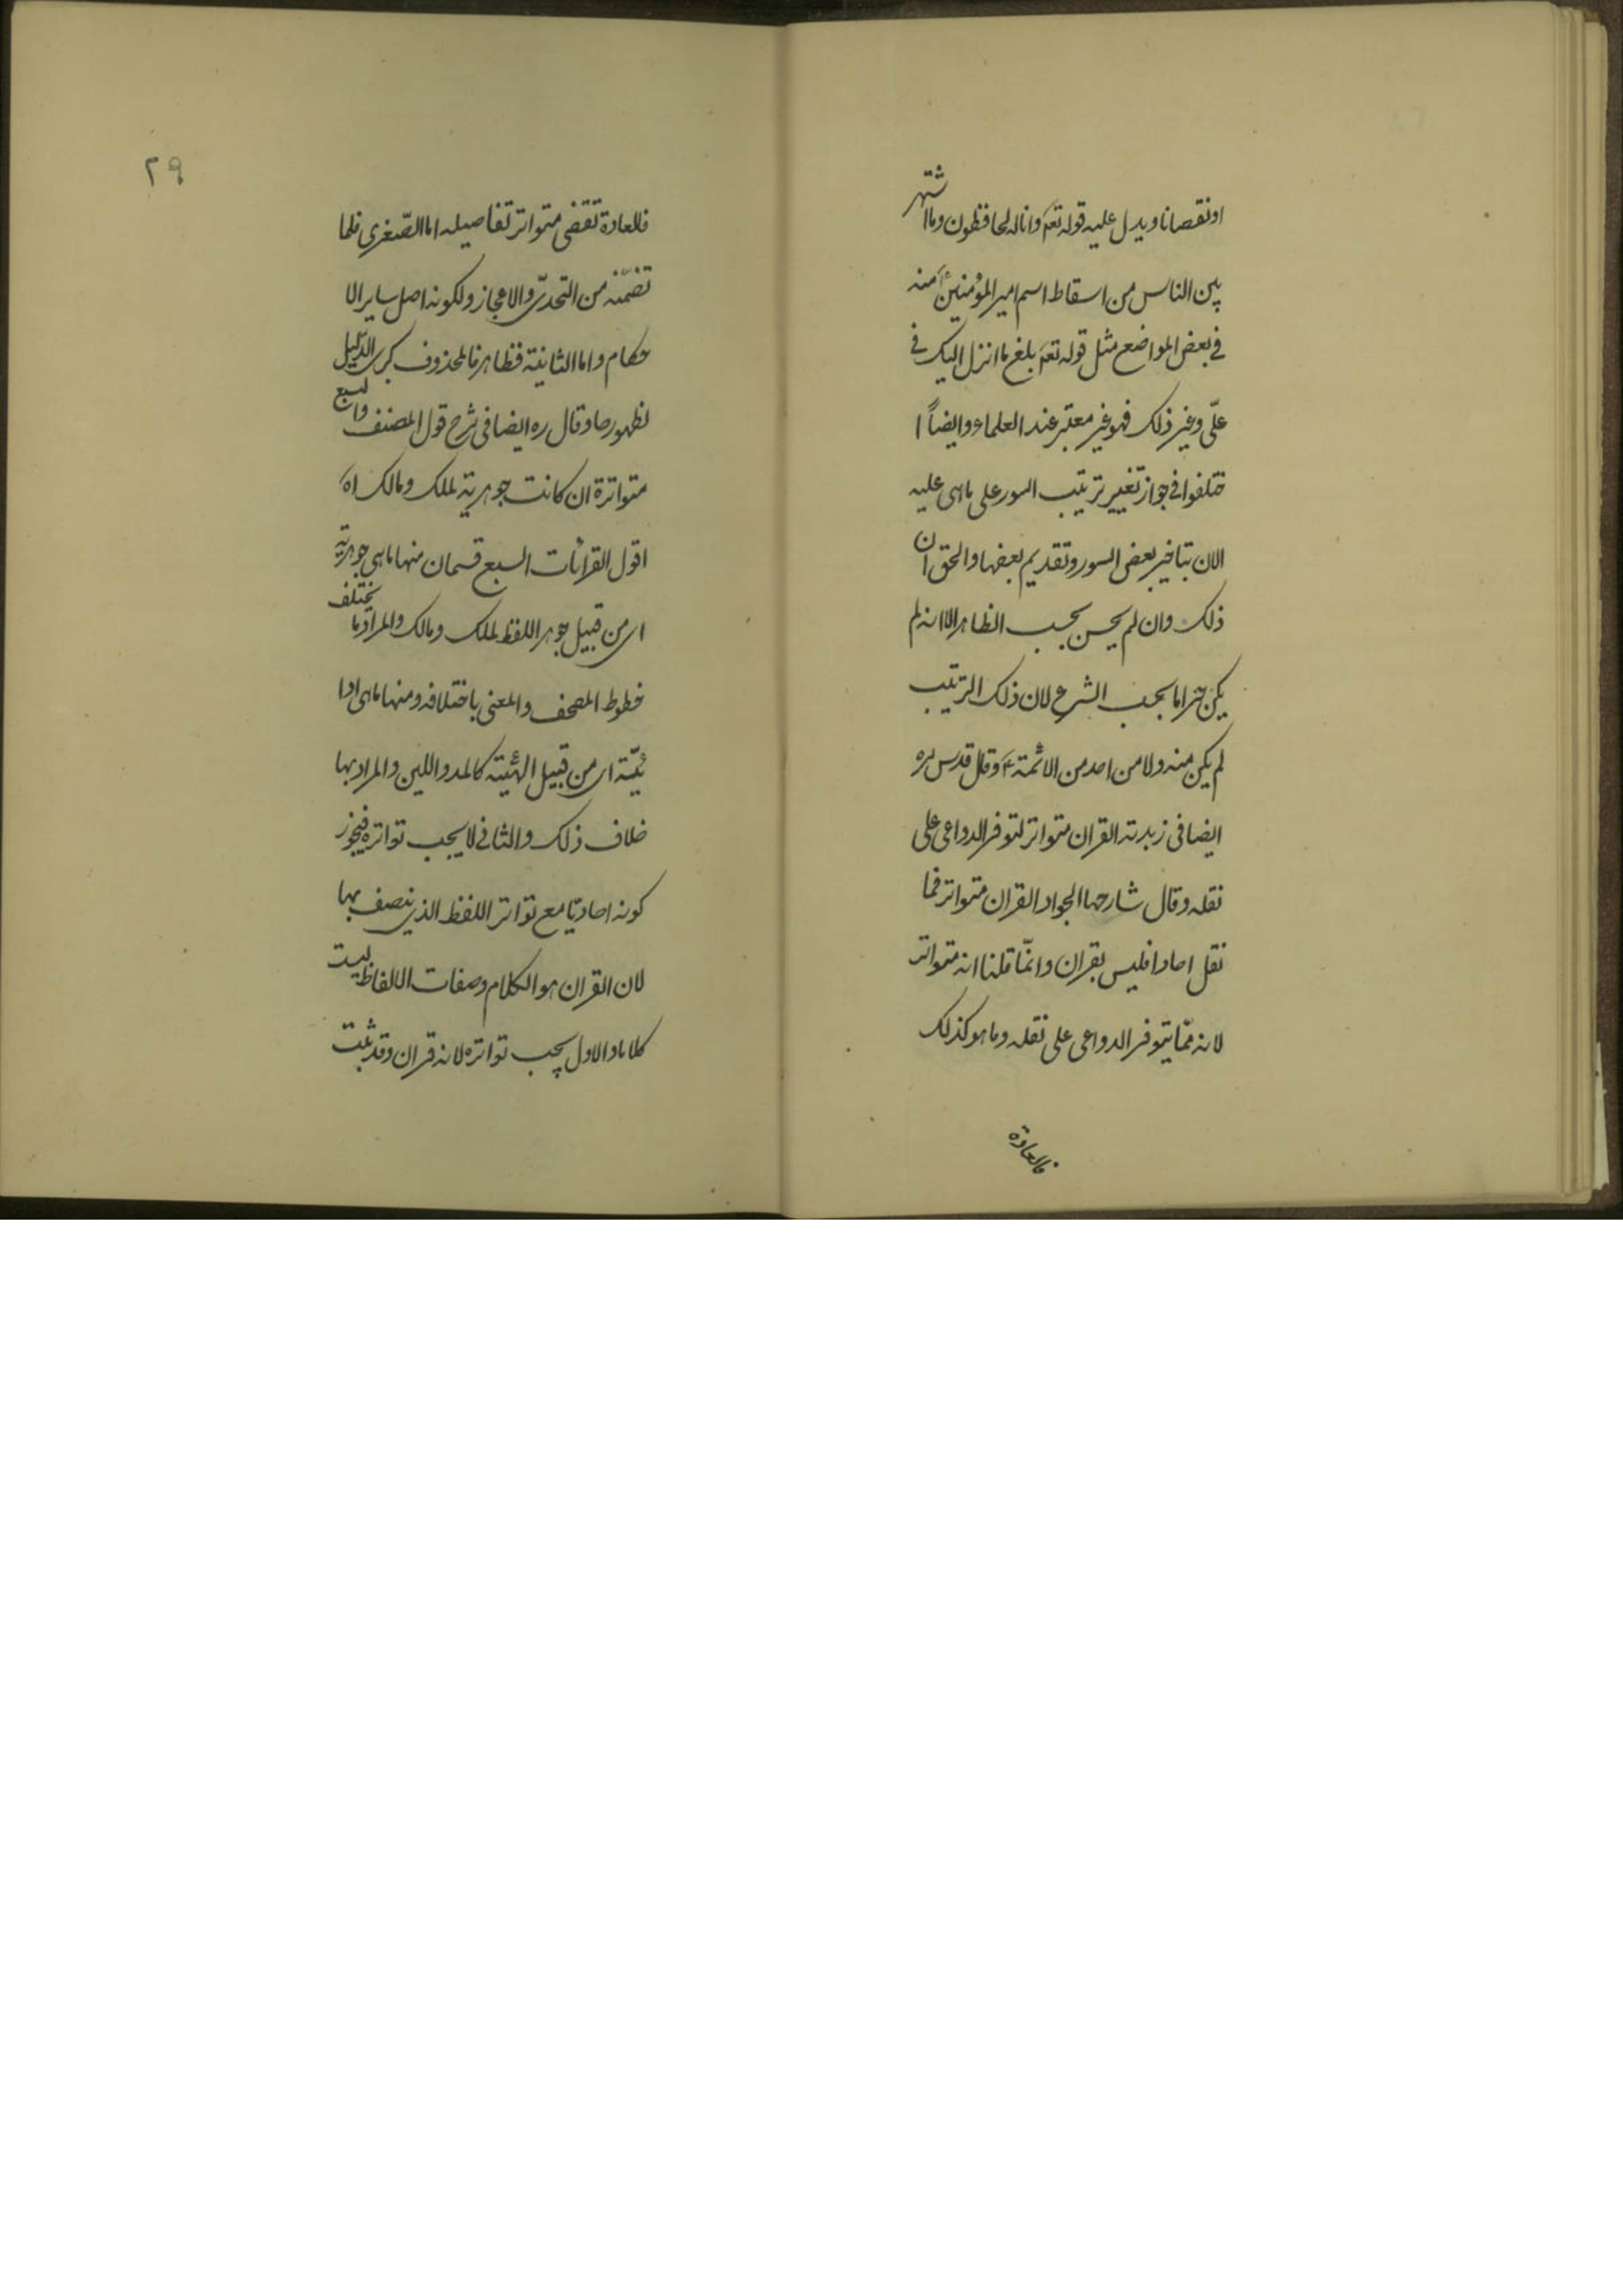 او نقصانا ويدل عليه قوله تعم وانا له لحافظون وما اشتهر
بين الناس من اسقاط اسم امير المؤمنين ع منه
في بعض المواضع مثل قوله تعم بلغ ما انزل اليك في
علّي وغير ذلك فهو غير معتبر عند العلماء وايضاً ا
ختلفوا في جواز تغيير ترتيب السور على ما هى عليه
الان بتاخير بعض السور وتقديم بعضها والحق ان
ذلك وان لم يحسن بحسب الظاهر الا انه لم
يكن حراما بحسب الشرع لان ذلك الترتيب
لم يكن منه ولا من احد من الائمة ع وقال قدس سره
ايضا فى زبدته القران متواتر لتوفر الدواعى على
نقله وقال شارحها الجواد القران متواتر فما
نقل احادا فليس بقران وانّما قلنا انه متواتر
لانه ممّا يتوفر الدواعى على نقله وما هو كذلك
فالعادة
٢٩
فالعادة تقضى بتواتر تفاصيله اما الصّغرى فلما
تضمّنه من التحدّى والاعجاز ولكونه اصل ساير الا
حكام واما الثانية فظاهر فالمحذوف كبرى الدّليل
لظهورها وقال ره ايضا فى شرح قول المصنف والسبع
متواترة ان كانت جوهرية كملك ومالك اه
اقول القرائات السبع قسمان منها ما هى جوهرية
اى من قبيل جوهر اللفظ كملك ومالك والمراد ما يختلف
خطوط المصحف والمعنى باختلافه ومنها ما هى ادا
ئيّة اى من قبيل الهيئة كالمد واللين والمراد بها
خلاف ذلك والثانى لا يجب تواتره فيجوز
كونه احاديّا مع تواتر اللفظ الذى يتصف بها
لان القران هو الكلام وصفات الالفاظ ليست
كلاما والاول يجب تواتره لانه قران وقد ثبت